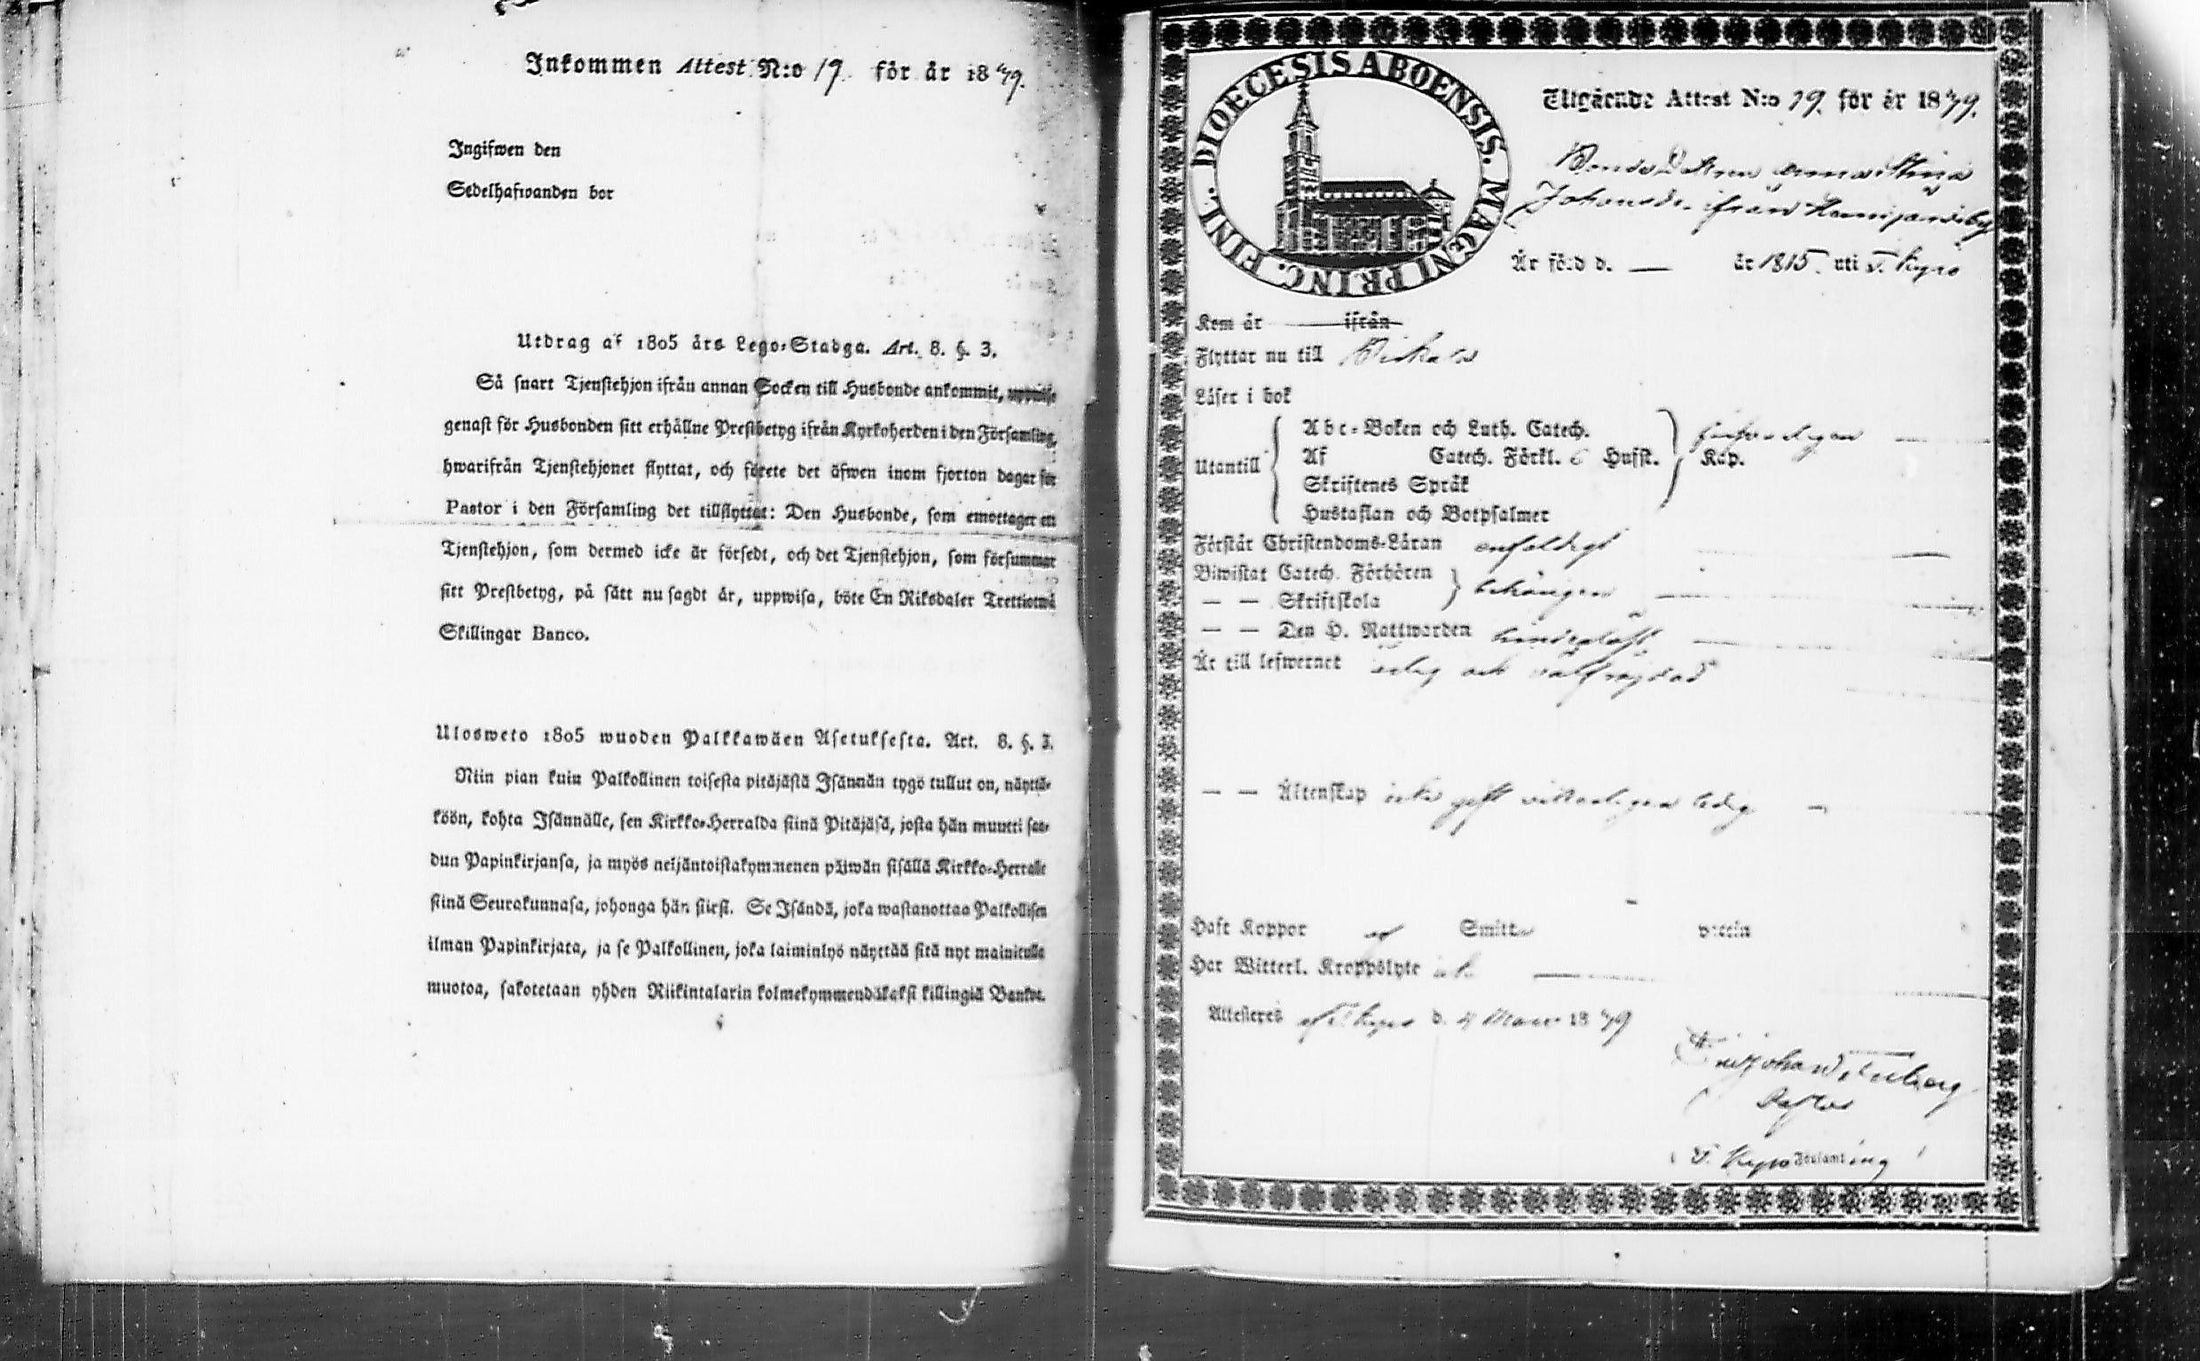 Inkommen Attest N:o 19. för år 1849.
Ingifwen den
Sedelhafwanden bor
Utdrag af 1805 års Lego-Stadga. Art. 8. §. 3.
Så snart Tjenstehjon ifrån annan Socken till Husbonde ankommit, uppwise
genast för Husbonden sitt erhållne Prestbetyg ifrån Kyrkoherden i den Församling,
hwarifrån Tjenstehjonet flyttat, och förete det äfwen inom fjorton dagar för
Pastor i den Församling det tillflyttat: Den Husbonde, som emottager ett
Tjenstehjon, som dermed icke är försedt, och det Tjenstehjon, som försummar
sitt Prestbetyg, på sätt nu sagdt är, uppwisa, böte En Riksdaler Trettiotwå
Skillingar Banco.
Ulosweto 1805 wuoden Palkkawäen Asetuksesta. Art. 8. §. 3.
Niin pian kuin Palkollinen toisesta pitäjästä Isännän tygö tullut on, näyttä-
köön, kohta Isännälle, sen Kirkko-Herralda siinä Pitäjäsä, josta hän muutti saa-
dun Papinkirjansa, ja myös neljäntoistakymmenen päiwän sisällä Kirkko-Herralle
siinä Seurakunnasa, johonga hän siirsi. Se Isändä, joka wastanottaa Palkollisen
ilman Papinkirjata, ja se Palkollinen, joka laiminlyö näyttää sitä nyt mainitulla
muotoa, sakotetaan yhden Riikintalarin kolmekymmendäkaksi killingiä Bankos.
DIOECESIS ABOENSIS. MAGNI PRINC. FINL.
Utgående Attest N:o 19. för år 1849.
Bonde Dottren Anna Stina
Johansdr. ifrån
Är född d. — år 1815. uti T. Kyro
Kom år — ifrån
Flyttar nu till Birkala
Läser i bok
Utantill
Abc-Boken och Luth. Catech.
Af Catech. Förkl. 6 Hufst. Kap.
Skriftenes Språk
Hustaflan och Botpsalmer
Förstår Christendoms-Läran enfaldigt
Biwistat Catech. Förhören
— — Skriftskola behörigen
— — Den H. Nattwarden
Är till lefwernet ärlig och wälfrejdad
— — Äktenskap icke gift witterligen ledig
Haft Koppor af Smitta
Har Witterl. Kroppslyte
Attesteres af T. Kyro d. 4 Mars 1849
Pastor
i T. Kyro Församling